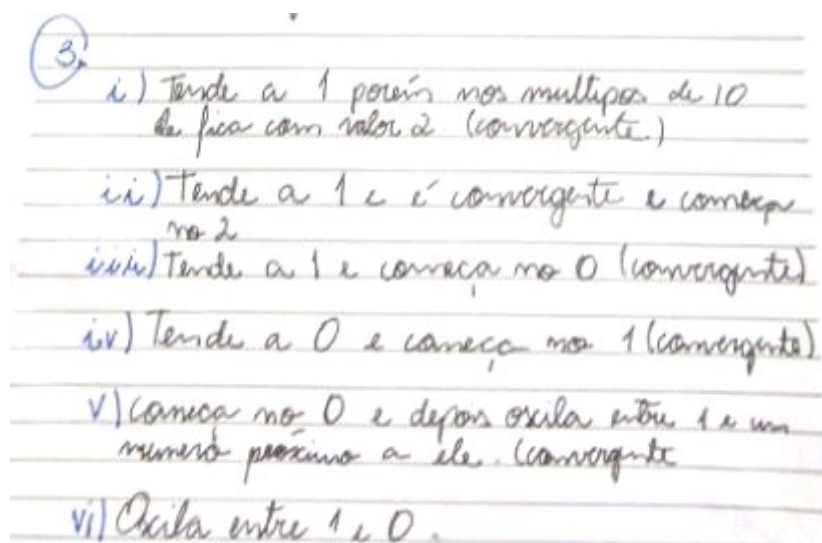 3.
i) Tende a 1 porém nos multipos de 10
ele fica com valor 2 (convergente)
ii) Tende a 1 e é convergente e começa
no 2
iii) Tende a 1 e começa no 0 (convergente)
iv) Tende a 0 e começa no 1 (convergente)
v) começa no 0 e depois oscila entre 1 e um
numero próximo a ele. (convergente
vi) Oscila entre 1 e 0.